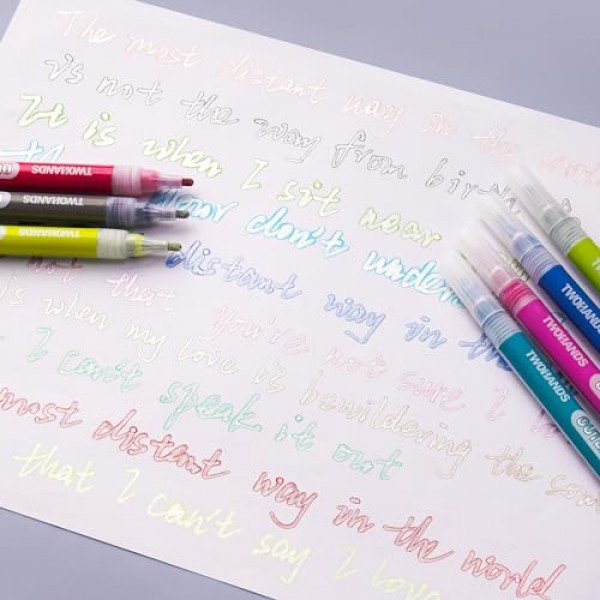 The most distant way in the world
is not the way from birth
It is when I sit near
dear don't under
distant way in the
not that you're not sure I lo
is when my love is bewildering the soul
I can't speak it out
most distant way in the world
that I can't say I love
TWOHANDS
TWOHANDS
TWOHANDS
TWOHANDS
TWOHANDS
TWOHANDS